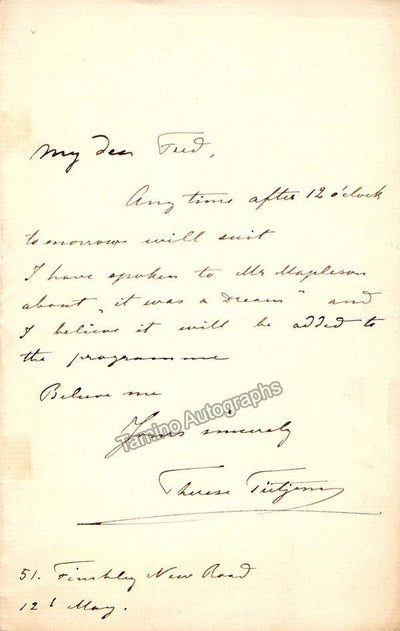 My dear Fred,
Any time after 12 o'clock
tomorrow will suit
I have spoken to Mr Mapleson
about "it was a Dream" and
I believe it will be added to
the programme
Believe me
Yours sincerely
Therese Tietjens
51. Finchley New Road
12t May.
Tamino Autographs